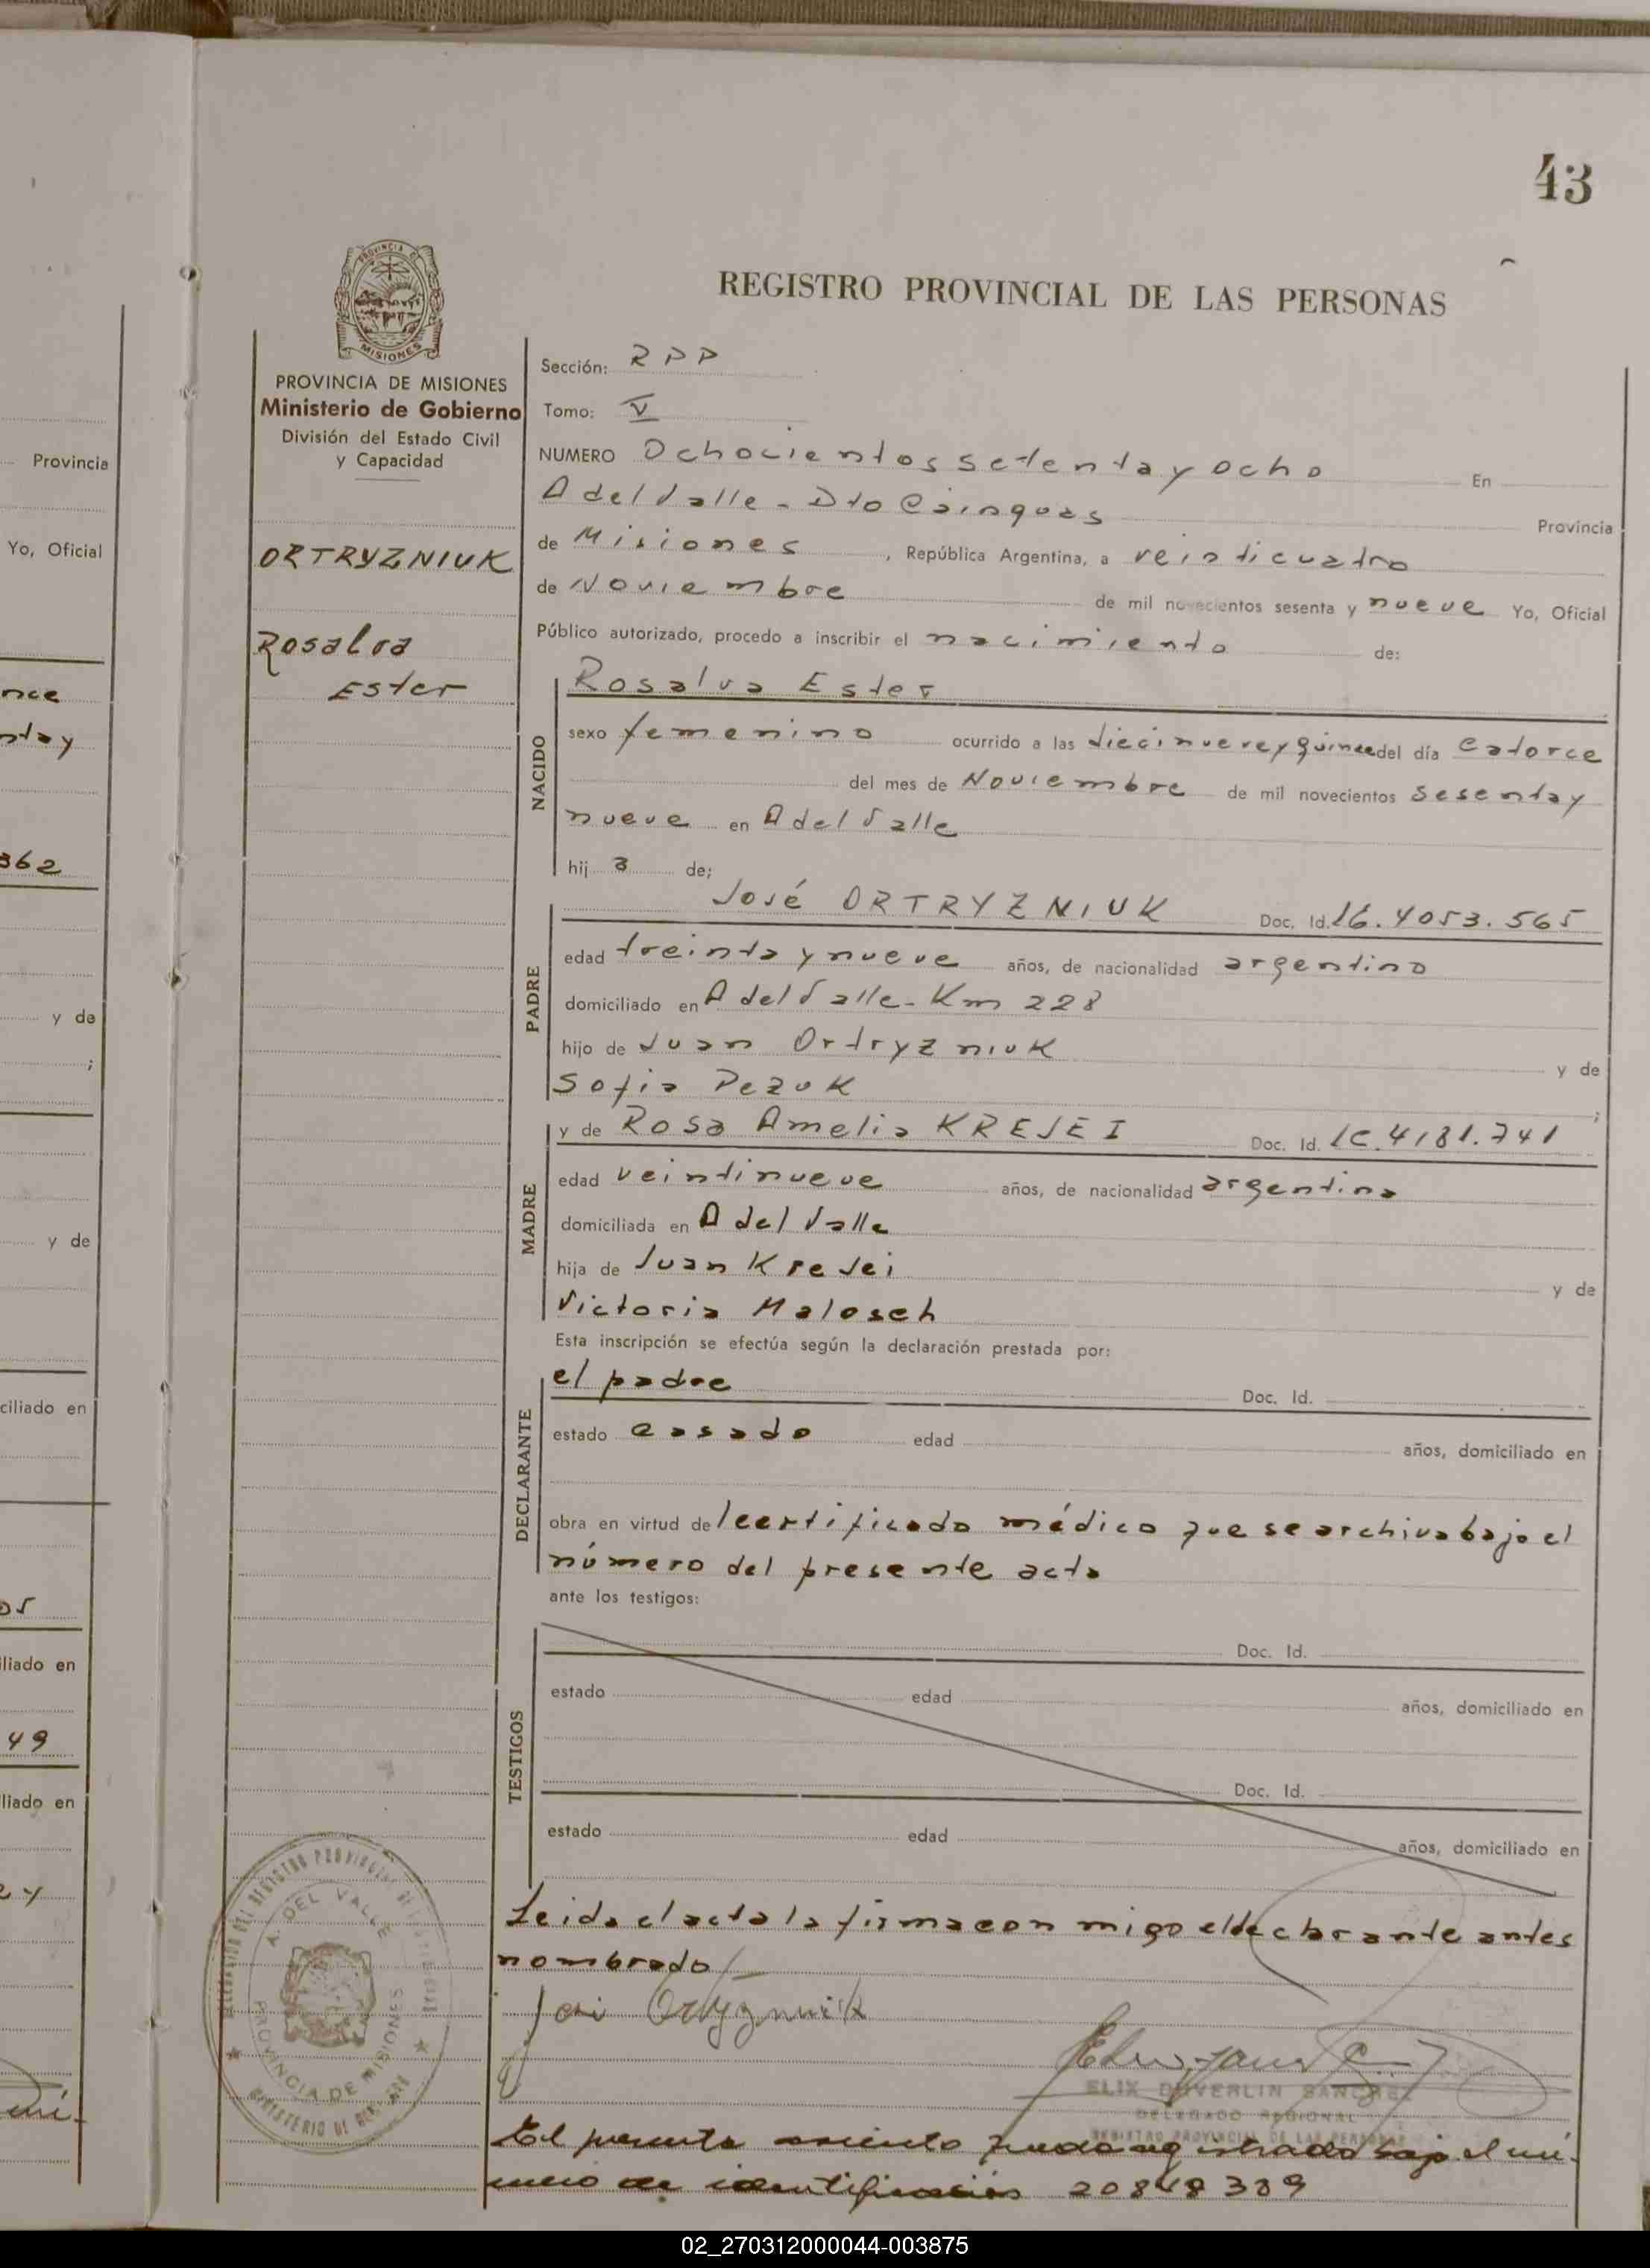 43
REGISTRO PROVINCIAL DE LAS PERSONAS
PROVINCIA DE
MISIONES
PROVINCIA DE MISIONES
Ministerio de Gobierno
División del Estado Civil
y Capacidad
ORTRYZNIUK
Rosalva
Ester
Sección: RPP
Tomo: V
NUMERO Ochocientos setenta y ocho En
A del Valle - Dto Cainguas Provincia
de Misiones, República Argentina, a veinticuatro
de Noviembre de mil novecientos sesenta y nueve Yo, Oficial
Público autorizado, procedo a inscribir el nacimiento de:
NACIDO
Rosalva Ester
sexo femenino ocurrido a las diecinueve y quince del día catorce
del mes de Noviembre de mil novecientos sesenta y
nueve en A del Valle
hij a de;
PADRE
José ORTRYZNIUK Doc. Id. 16.4053.565
edad treinta y nueve años, de nacionalidad argentino
domiciliado en A del Valle - Km 228
hijo de Juan Ortryzniuk y de
Sofia Pezuk ;
MADRE
y de Rosa Amelia KREJEI Doc. Id. LC.4181.741
edad veintinueve años, de nacionalidad argentina
domiciliada en A del Valle
hija de Juan Krejei y de
Victoria Malosch
Esta inscripción se efectúa según la declaración prestada por:
DECLARANTE
el padre Doc. Id.
estado casado edad años, domiciliado en
obra en virtud de l certificado médico que se archiva bajo el
número del presente acta
ante los testigos:
TESTIGOS
Doc. Id.
estado edad años, domiciliado en
Doc. Id.
estado edad años, domiciliado en
Leida el acta la firma con migo el declarante antes
nombrado/-
José Ortryzniuk
ELIX DUVERLIN SANCHEZ
DELEGADO REGIONAL
REGISTRO PROVINCIAL DE LAS PERSONAS
El presente asiento queda registrado bajo el nú-
mero de identificación 20848389
A. DEL VALLE
PROVINCIA DE MISIONES
Provincia
Yo, Oficial
nce
nta y
362
y de
;
y de
ciliado en
05
iliado en
49
liado en
02_270312000044-003875